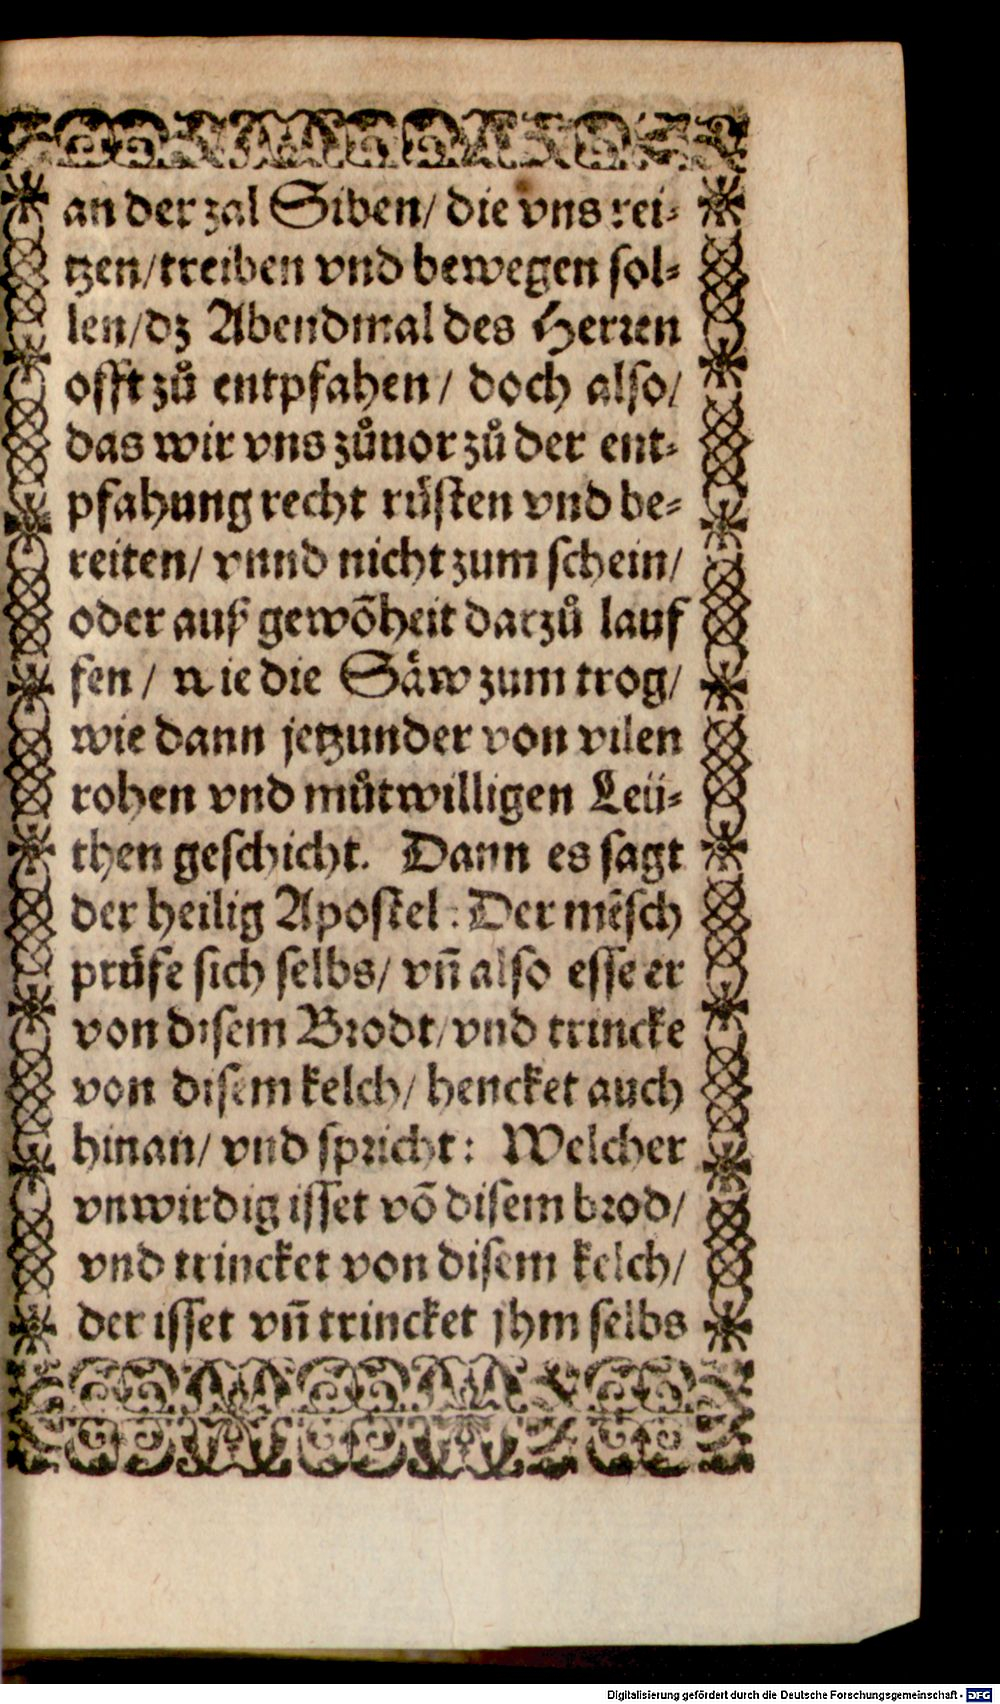 an der zal Siben/ die vns rei⸗
tzen/treiben vnd bewegen sol⸗
len/dz Abendmal des Herren
offt zů entpfahen/ doch also/
das wir vns zůuor zů der ent⸗
pfahung recht rüsten vnd be⸗
reiten/ vnnd nicht zum schein/
oder auß gewõheit darzů lauf
fen/ wie die Säw zum trog/
wie dann jetzunder von vilen
rohen vnd můtwilligen Leü⸗
then geschicht. Dann es sagt
der heilig Apostel: Der mẽsch
prüfe sich selbs/ vñ also esse er
von disem Brodt/vnd trincke
von disem kelch/ hencket auch
hinan/ vnd spricht: Welcher
vnwirdig isset võ disem brod/
vnd trincket von disem kelch/
der isset vñ trincket jhm selbs
Digitalisierung gefördert durch die Deutsche Forschungsgemeinschaft - DFG